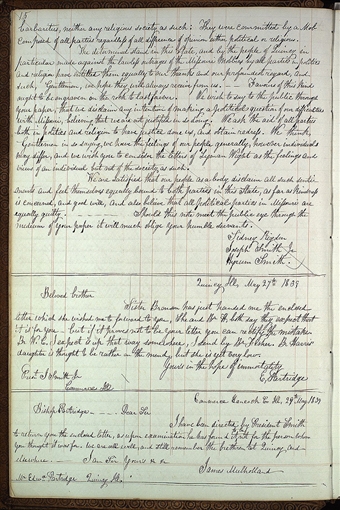 15
barbarities, neither any religious society as such: They were committed by a Mob
composed of all parties regardless of all difference of opinion either political or religious.
The determined stand in this State, and by the people of Quincy in
particular made against the lawless outrages of the Missouri Mobbers by all parties in politics
and religion have entitled them equally to our thanks and our profoundest regard, and
such, Gentlemen, we hope they will always receive from us. Favours of this kind
ought to be engraven on the rock to last forever. We wish to say to the public through
your paper, that we disclaim any intention of making a political question of our difficulties
with Missouri, believing that we are not justified in so doing. We ask the aid of all parties
both in politics and religion to have justice done us, and obtain redress. We think,
Gentlemen in so saying, we have the feelings of our people generally, however individuals
may differ, and we wish you to consider the letters of Lyman Wight as the feelings and
views of an individual but not of the society as such.
We are satisfied that our people as a body disclaim all such senti-
ments and feel themselves equally bound to both parties in this State, as far as kindness
is concerned, and good will, and also believe that all political parties in Missouri are
equally guilty. Should this note meet the public eye through the
medium of your paper it will much oblige your humble servants.
Sidney Rigdon
Joseph Smith Jr
Hyrum Smith.
Quincy Ills, May 27th 1839
Beloved brother
Sister Bronson has just handed me the enclosed
letter which she wished me to forward to you. She and Mr. B. both say they expect that
it is for you but if it proves not to be your letter you can rectify the mistake.
Dr. W. C. I expect is up that way somewhere, I send by
daughter is thought to be rather on the mend, but she is yet very low.
Yours in the hope of immortality
E. Partridge
Prest J Smith Jr
Commerce Ills
Commerce Hancock Co. Ills, 29th May 1839
Bishop Partridge Dear Sir
I have been directed by President Smith
to return you the enclosed letter, as upon examination he has found it not for the person whom
you thought it was for. we are all well, and still remember the brethren at Quincy, and
elsewhere. I am Sir Yours &c &c
James Mulholland
Mr Edwd Partridge Quincy Ills.